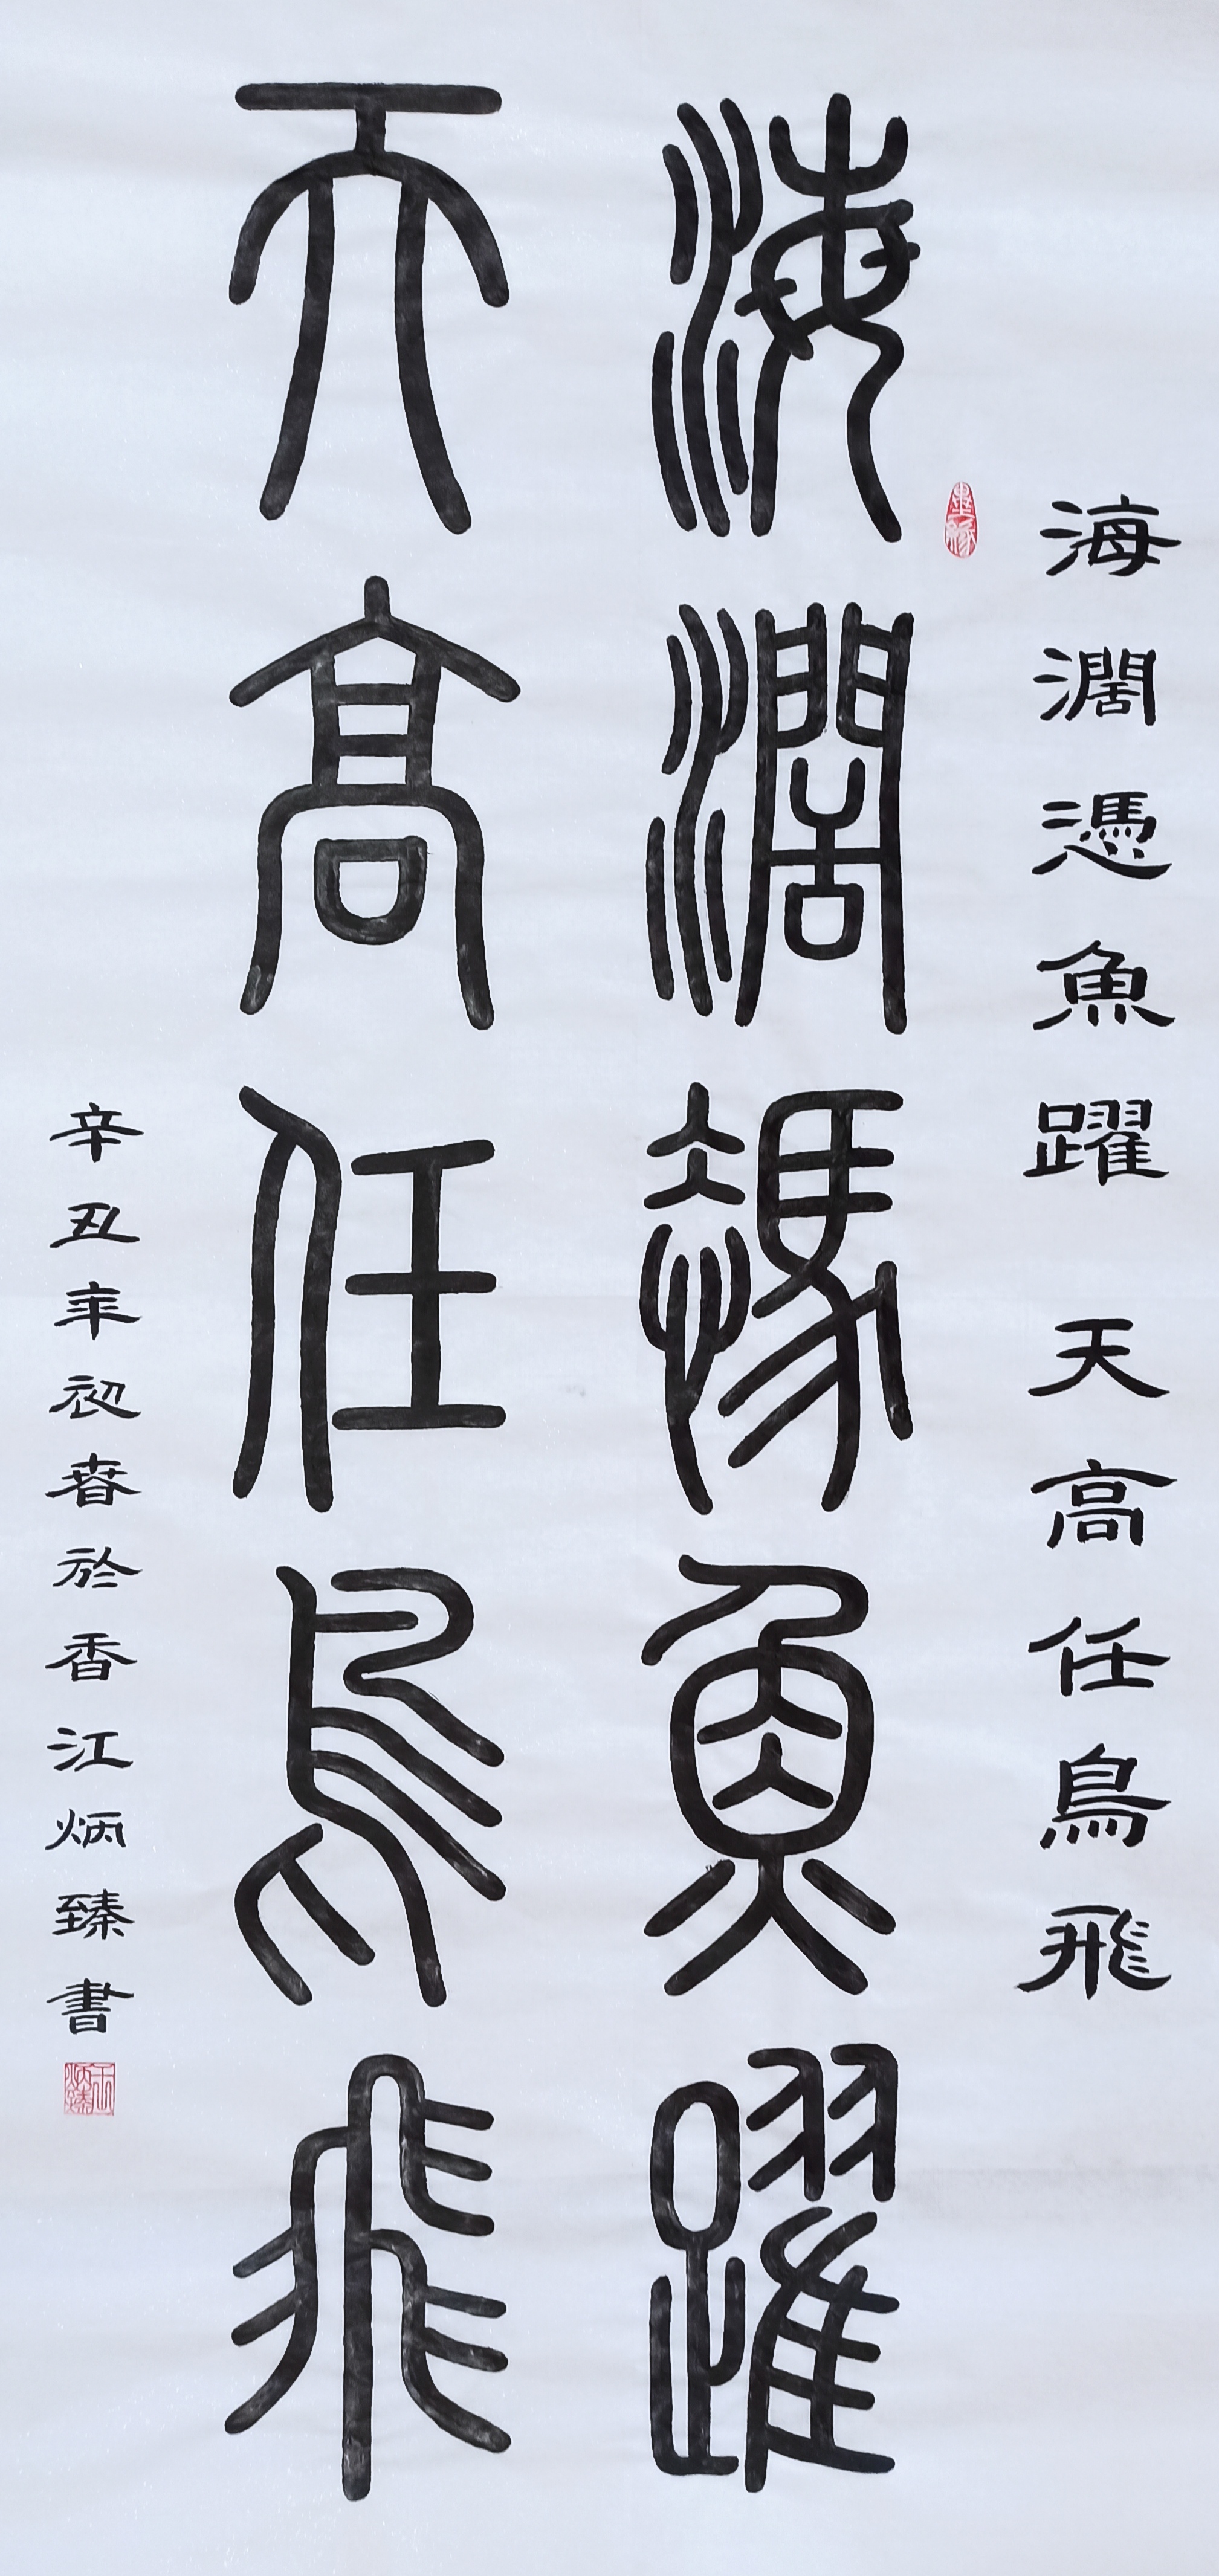 海濶憑魚躍 天高任鳥飛
墨緣
海濶憑魚躍
天高任鳥飛
辛丑年初春於香江炳臻書
炳臻